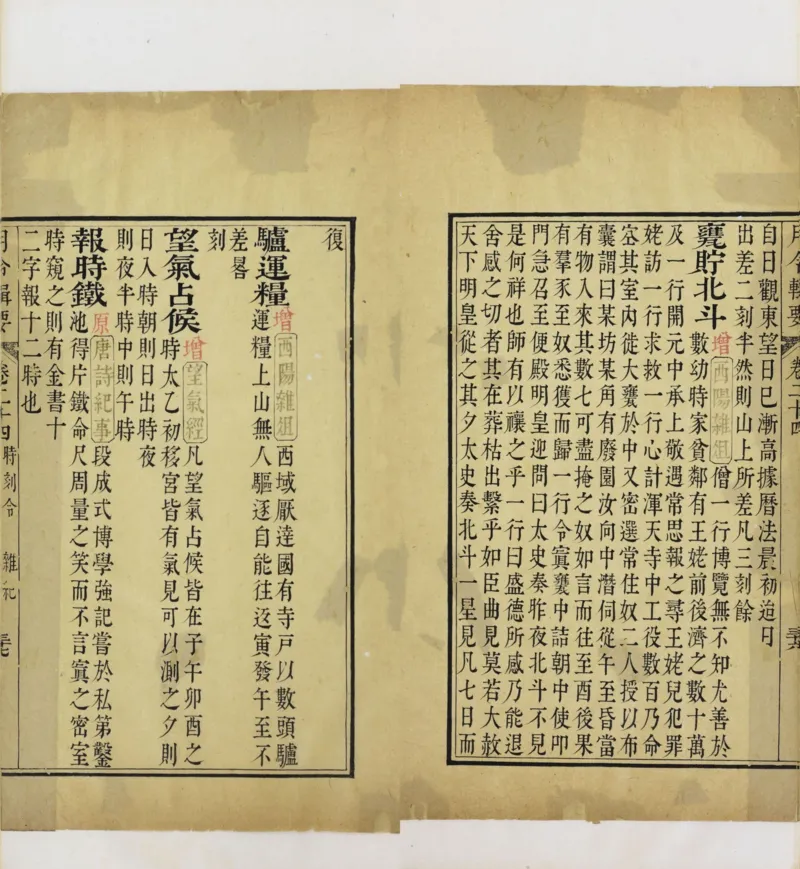 月令輯要 卷二十四
自日觀東望日已漸高據曆法晨初迨日
出差二刻半然則山上所差凡三刻餘
甕貯北斗 增 酉陽雜俎 僧一行博覽無不知尤善於
數幼時家貧鄰有王姥前後濟之數十萬
及一行開元中承上敬遇常思報之尋王姥兒犯罪
姥訪一行求救一行心計渾天寺中工役數百乃命
空其室內徙大甕於中又密選常住奴二人授以布
囊謂曰某坊某角有廢園汝向中潛伺從午至昏當
有物入來其數七可盡掩之奴如言而往至酉後果
有羣豕至奴悉獲而歸一行令寘甕中詰朝中使叩
門急召至便殿明皇迎問曰太史奏昨夜北斗不見
是何祥也師有以禳之乎一行曰盛德所感乃能退
舍感之切者其在葬枯出繫乎如臣曲見莫若大赦
天下明皇從之其夕太史奏北斗一星見凡七日而
復
驢運糧 增 酉陽雜俎 西域厭達國有寺戶以數頭驢
運糧上山無人驅逐自能往返寅發午至不
差晷
刻
望氣占候 增 望氣經 凡望氣占候皆在子午卯酉之
時太乙初移宮皆有氣見可以測之夕則
日入時朝則日出時夜
則夜半時中則午時
報時鐵 原 唐詩紀事 段成式博學強記嘗於私第鑿
池得片鐵命尺周量之笑而不言寘之密室
時窺之則有金書十
二字報十二時也
月令輯要 卷二十四 時刻令 雜記